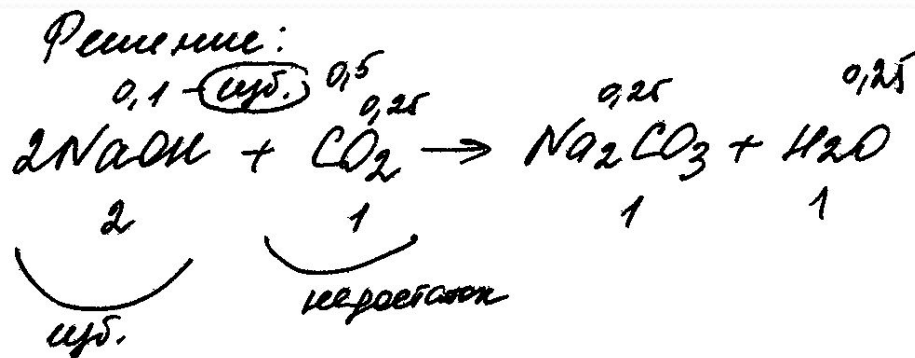 Решение:
0,1 - изб. 0,5 0,25 0,25 0,25
2NaOH + CO2 → Na2CO3 + H2O
2 1 1 1
изб. недостаток